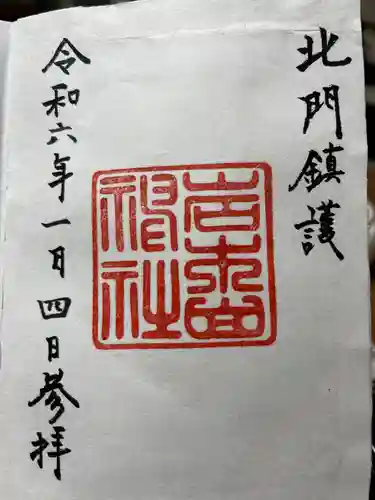 北門鎮護
神社
令和六年一月四日参拝